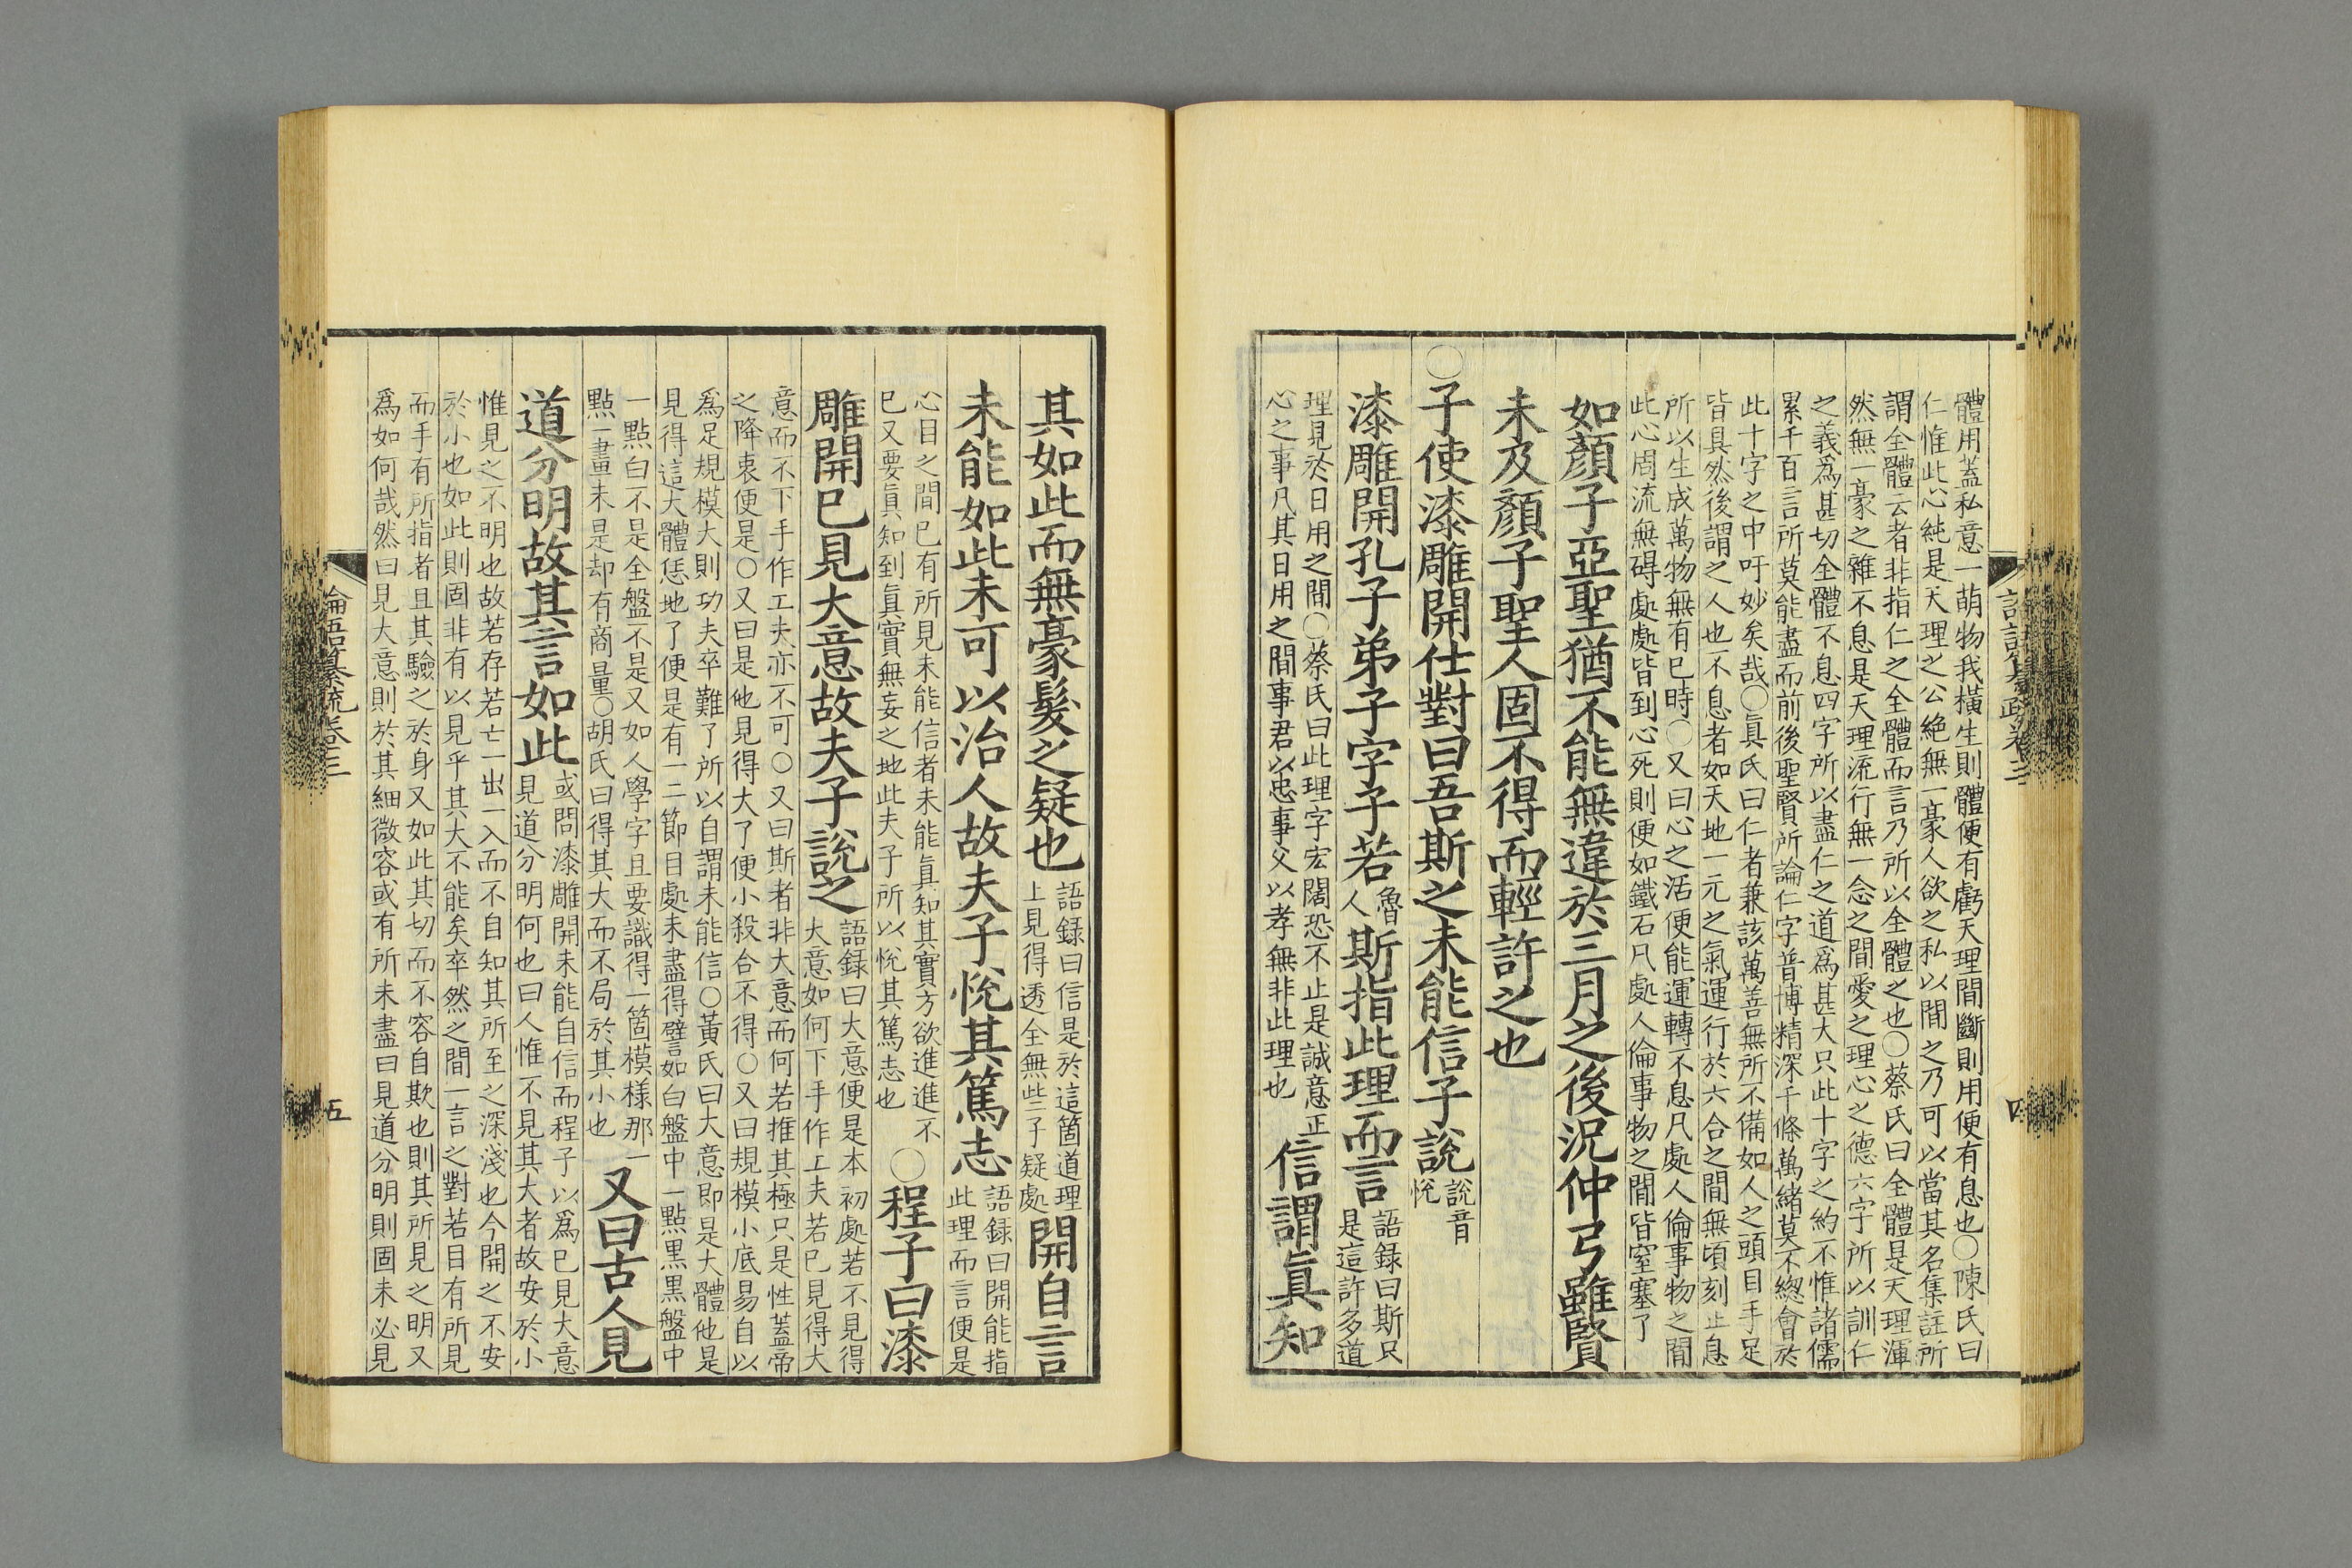 體用蓋私意一萌物我橫生則體便有虧天理間斷則用便有息也〇陳氏曰
仁惟此心純是天理之公絶無一豪人欲之私以間之乃可以當其名集註所
謂全體云者非指仁之全體而言乃所以全體之也〇蔡氏曰全體是天理渾
然無一豪之雜不息是天理流行無一念之間愛之理心之德六字所以訓仁
之義爲甚切全體不息四字所以盡仁之道爲甚大只此十字之約不惟諸儒
累千百言所莫能盡而前後聖賢所論仁字普博精深千條萬緒莫不總會於
此十字之中吁妙矣哉〇眞氏曰仁者兼該萬善無所不備如人之頭目手足
皆具然後謂之人也不息者如天地一元之氣運行於六合之間無頃刻止息
所以生成萬物無有已時〇又曰心之活便能運轉不息凡處人倫事物之間
此心周流無碍處處皆到心死則便如鐵石凡處人倫事物之間皆窒塞了
如顏子亞聖猶不能無違於三月之後況仲弓雖賢
未及顏子聖人固不得而輕許之也
〇子使漆雕開仕對曰吾斯之未能信子說
說音
悅
漆雕開孔子弟子字子若
魯
人
斯指此理而言
語錄曰斯只
是這許多道
理見於日用之間〇蔡氏曰此理字宏闊恐不止是誠意正
心之事凡其日用之間事君以忠事父以孝無非此理也
信謂眞知
論語纂疏卷三
四
其如此而無豪髮之疑也
語錄曰信是於這箇道理
上見得透全無些子疑處
開自言
未能如此未可以治人故夫子悅其篤志
語錄曰開能指
此理而言便是
心目之間已有所見未能信者未能眞知其實方欲進進不
已又要眞知到眞實無妄之地此夫子所以悅其篤志也
〇程子曰漆
雕開已見大意故夫子說之
語錄曰大意便是本初處若不見得
大意如何下手作工夫若已見得大
意而不下手作工夫亦不可〇又曰斯者非大意而何若推其極只是性蓋帝
之降衷便是〇又曰是他見得大了便小殺合不得〇又曰規模小底易自以
爲足規模大則功夫卒難了所以自謂未能信〇黃氏曰大意即是大體他是
見得這大體恁地了便是有一二節目處未盡得譬如白盤中一點黑黑盤中
一點白不是全盤不是又如人學字且要識得一箇模樣那一
點一畫未是却有商量〇胡氏曰得其大而不局於其小也
又曰古人見
道分明故其言如此
或問漆雕開未能自信而程子以爲已見大意
見道分明何也曰人惟不見其大者故安於小
惟見之不明也故若存若亡一出一入而不自知其所至之深淺也今開之不安
於小也如此則固非有以見乎其大不能矣卒然之間一言之對若目有所見
而手有所指者且其驗之於身又如此其切而不容自欺也則其所見之明又
爲如何哉然曰見大意則於其細微容或有所未盡曰見道分明則固未必見
論語纂疏卷三
五